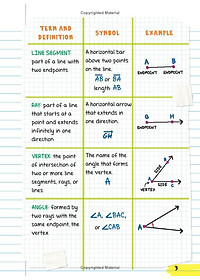 Copyrighted Material
TERM AND
DEFINITION
SYMBOL
EXAMPLE
LINE SEGMENT:
part of a line with
two endpoints
A horizontal bar
above two points
on the line.
AB or BA
length AB
A B
ENDPOINT ENDPOINT
RAY: part of a line
that starts at a
point and extends
infinitely in one
direction
A horizontal arrow
that extends in
one direction.
GH
G H
ENDPOINT
VERTEX: the point
of intersection of
two or more line
segments, rays, or
lines
The name of the
angle that forms
the vertex.
A
B
SIDE
A SIDE C
VERTEX
ANGLE: formed by
two rays with the
same endpoint, the
vertex
∠A, ∠BAC,
or ∠CAB
A
3
Copyrighted Material